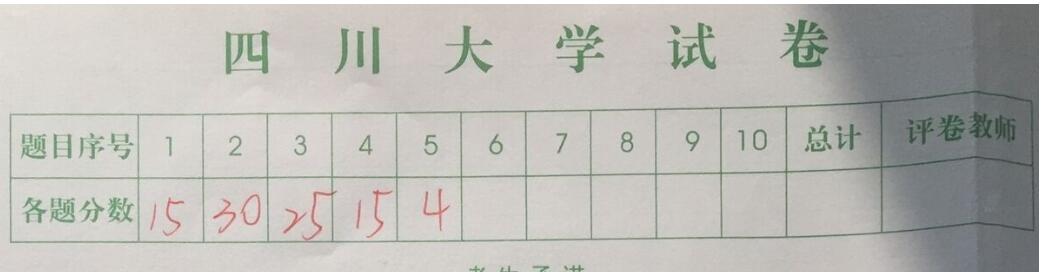 四川大学试卷
题目序号 1 2 3 4 5 6 7 8 9 10 总计 评卷教师
各题分数 15 30 25 15 4